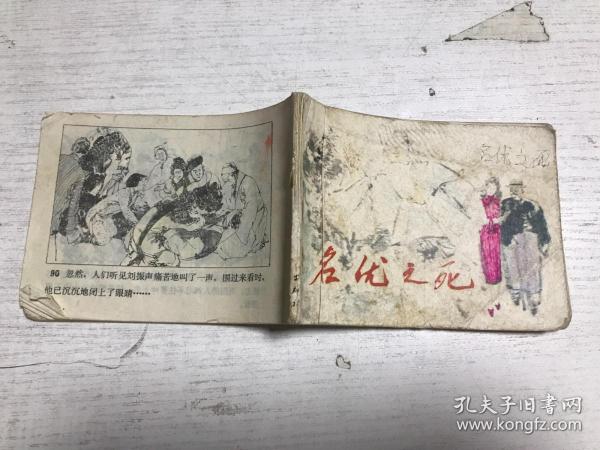 名优之死
名优之死
90 忽然，人们听见刘振声痛苦地叫了一声，围过来看时，
他已沉沉地闭上了眼睛……
孔夫子旧书网
www.kongfz.com